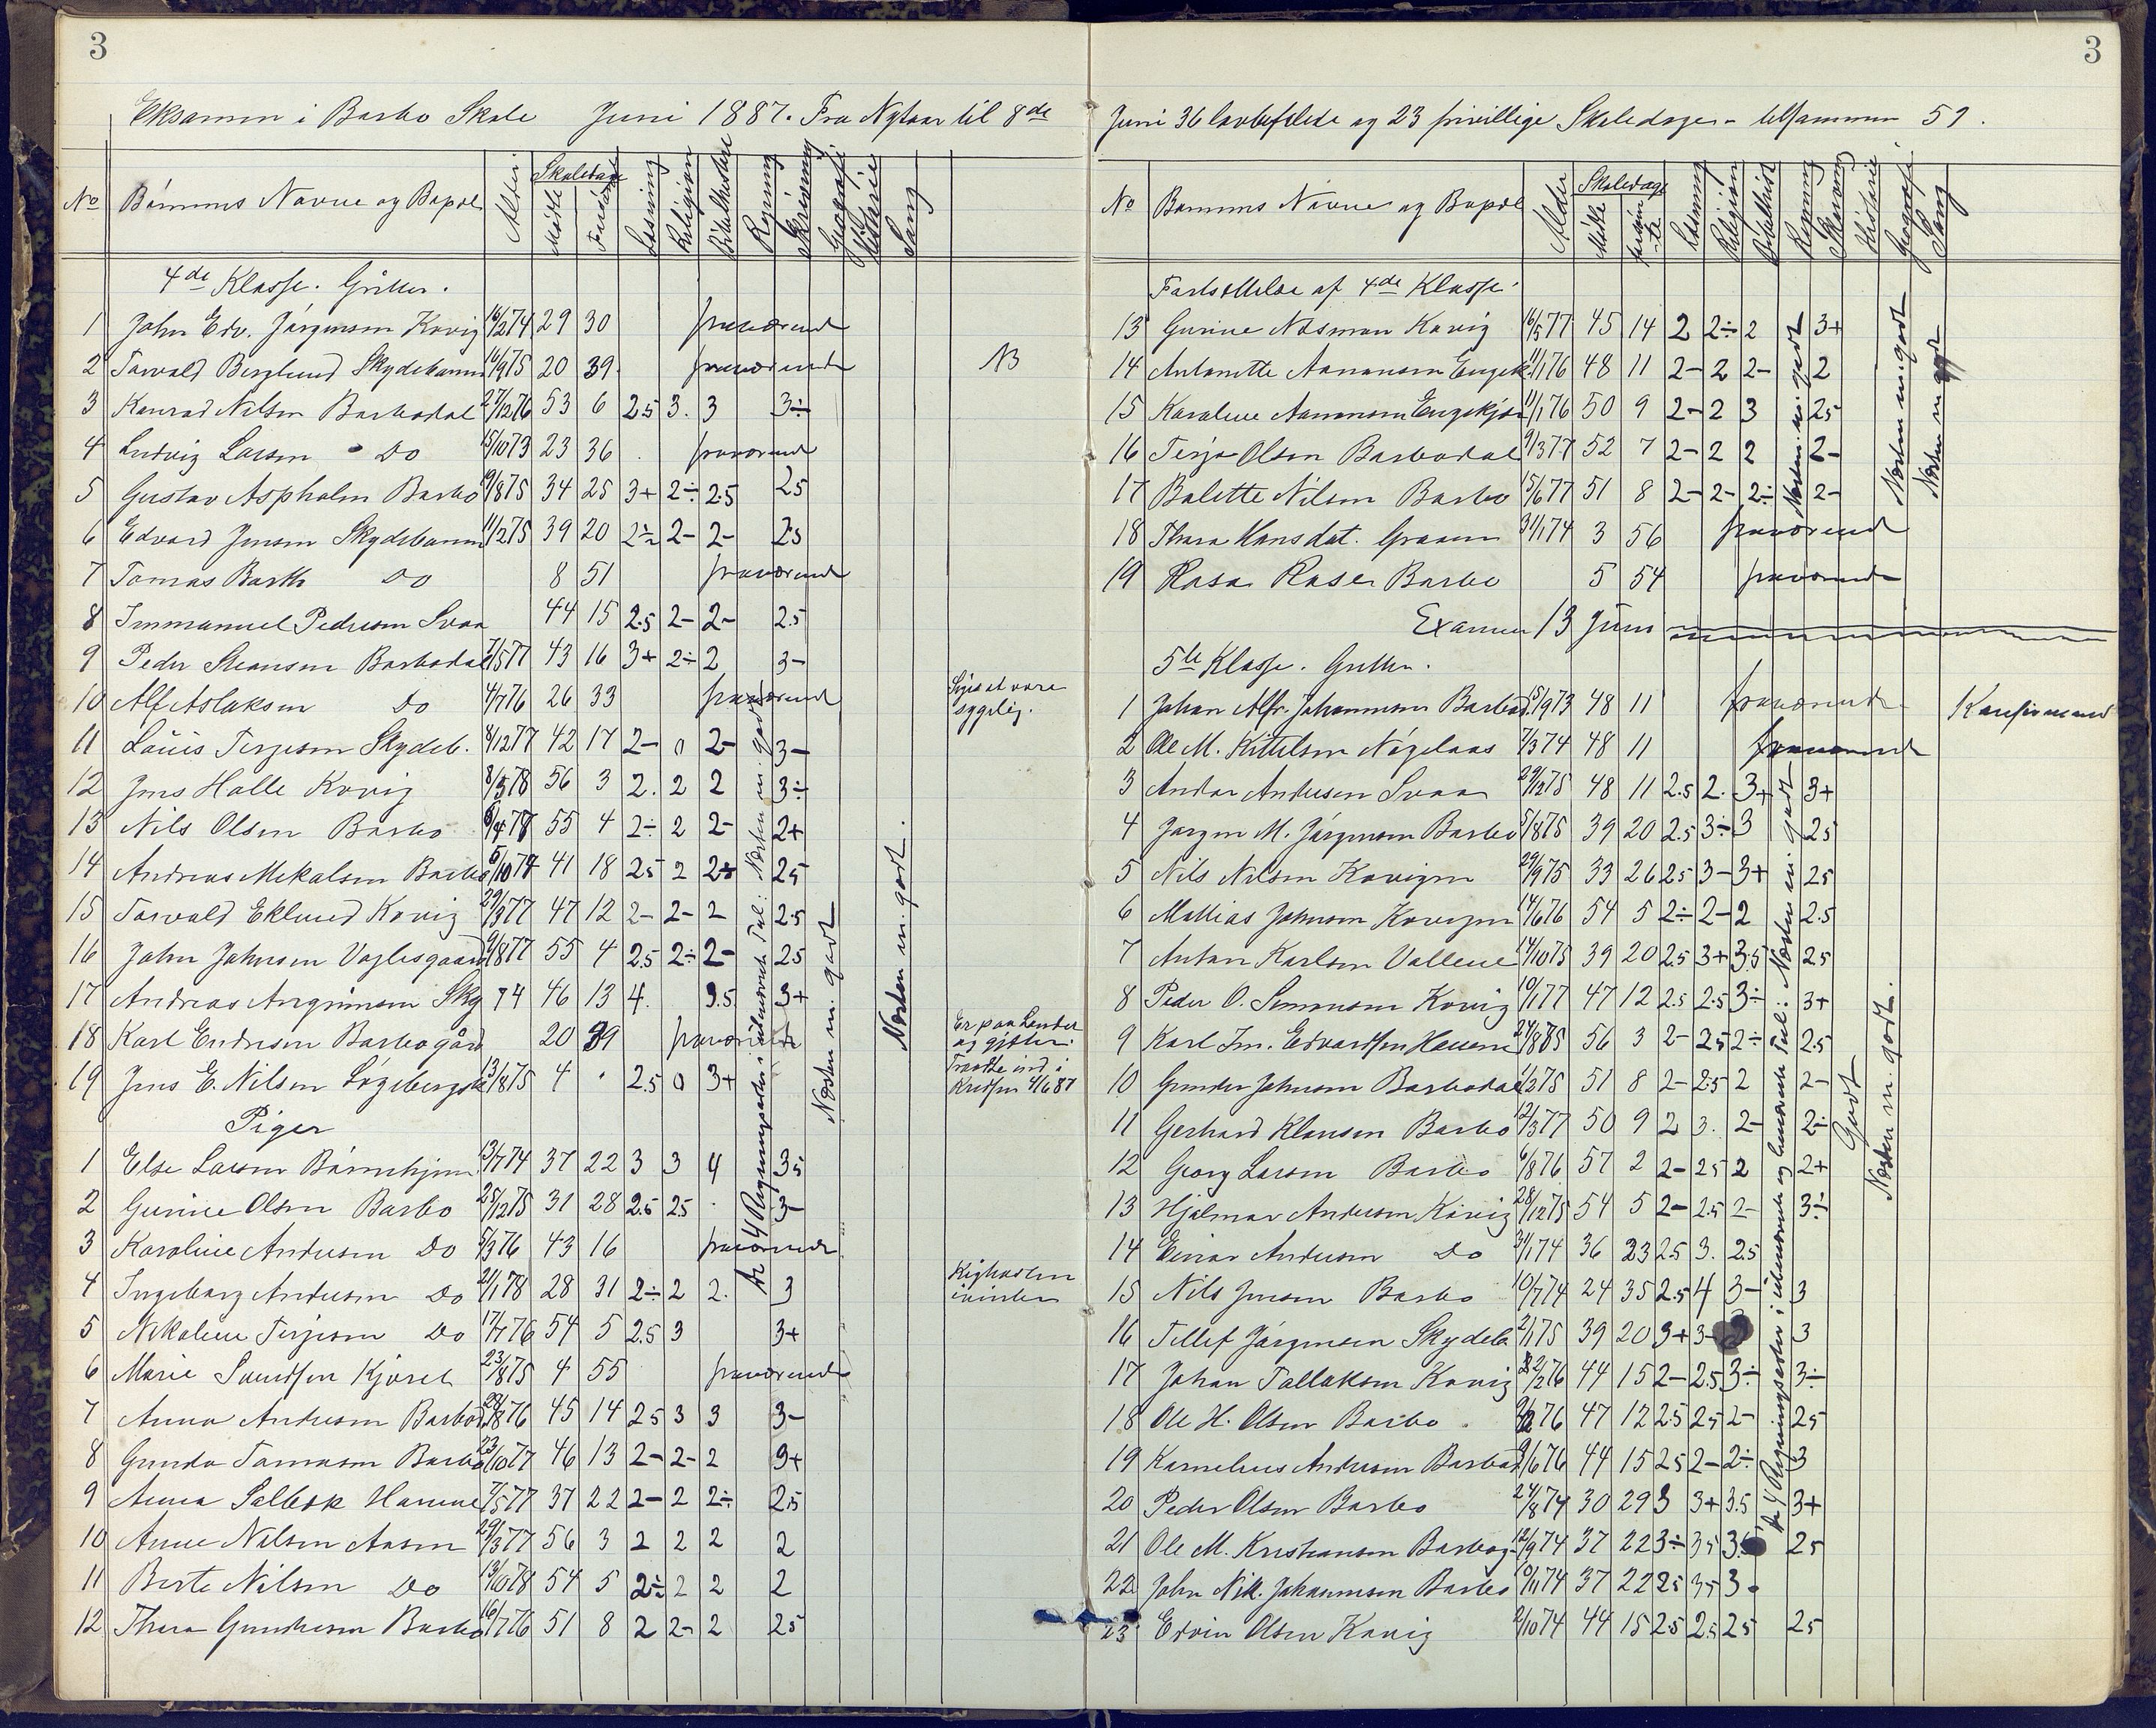 3
Eksamen i Barbo Skole Juni 1887. Fra Nytaar til 8de
No Børnenes Navne og Bopæl Alder Skoledage Mødte Forsømte Læsning Religion Bibelhistorie Regning Skrivning Geografi Historie Sang
4de Klasse. Gutter.
1 John Edv. Jørgensen Kovig 16/2 74 29 30 fraværende
2 Torvald Berglund Skydebanen 16/9 75 20 39 fraværende NB
3 Konrad Nilsen Barbodal 27/12 76 53 6 2.5 3. 3 3÷
4 Ludvig Larsen Do 15/10 73 23 36 fraværende
5 Gustav Aspholm Barbo 19/8 75 34 25 3+ 2÷ 2.5 2.5
6 Edvard Jensen Skydebanen 11/2 75 39 20 2÷ 2- 2- 2.5
7 Tomas Barth Do 8 51 fraværende
8 Immanuel Pedersen Svaa 44 15 2.5 2- 2- 2.5
9 Peder Steansen Barbodal 7/5 77 43 16 3+ 2÷ 2 3-
10 Alf Aslaksen Do 4/7 76 26 33 fraværende Siges at være sygelig.
11 Louis Terjesen Skydeb. 8/12 77 42 17 2- 0 2- 3-
12 Jens Holle Kovig 8/3 78 56 3 2. 2 2 3÷
13 Nils Olsen Barbo 8/4 78 55 4 2÷ 2 2- 2+
14 Andreas Mekalsen Barbo 5/10 74 41 18 2.5 2 2÷ 2.5
15 Torvald Eklund Kovig 29/3 77 47 12 2- 2- 2 2.5
16 John Johnsen Voglesgaard 9/8 77 55 4 2.5 2÷ 2- 2.5
17 Andreas Arguinsen Sky 74 46 13 4. 3.5 3+
18 Karl Endresen Barbogård 20 39 fraværende Er paa Landet og gjæter.
19 Jens E. Nilsen Løgebergsk 13/8 75 4 . 2.5 0 3+ Traadte ind i Kredsen 4/6 87
Piger
1 Else Larsen Børnehjem 13/7 74 37 22 3 3 4 3.5
2 Gurine Olsen Barbo 25/12 75 31 28 2.5 2.5 . 3-
3 Karoline Andersen Do 5/3 76 43 16 fraværende
4 Ingeborg Andersen Do 21/1 78 28 31 2÷ 2 2. 3 Kighosten i vinter
5 Nikoline Terjesen Do 17/7 76 54 5 2.5 3 3+
6 Marie Svendsen Kjøset 23/8 75 4 55 fraværende
7 Anna Andersen Barbod 28/8 76 45 14 2.5 3 3 3-
8 Gunda Tomasen Barbo 23/10 77 46 13 2- 2- 2 3+
9 Anna Salbok Havene 7/5 77 37 22 2- 2 2÷ 2.5
10 Anne Nilsen Aasen 29/3 77 56 3 2 2 2 2
11 Berte Nilsen Do 13/10 78 54 5 2÷ 2 2 2
12 Thora Gundersen Barbo 16/7 76 51 8 2 2- 2 2.5
De 4 Regningsarter i ubenævnte Tal: Næsten m. godt
Næsten m. godt
Næsten m. godt.
3
Juni 36 lovbefalede og 23 frivillige Skoledage - tilsammen 59.
No Børnenes Navne og Bopæl Alder Skoledage Mødte forsømte Læsning Religion Bibelhist Regning Skrivning Historie Geografi Sang
Fortsættelse af 4de Klasse.
13 Gurine Nosman Kovig 16/5 77 45 14 2 2÷ 2 3+
14 Antonette Aanonsen Engekj. 11/1 76 48 11 2- 2 2- 2
15 Karoline Aanonsen Engekjær 11/1 76 50 9 2- 2 3 2.5
16 Terje Olsen Barbodal 9/3 77 52 7 2- 2 2 2-
17 Balette Nilsen Barbo 15/6 77 51 8 2- 2- 2÷ 2-
18 Thora Hansdat. Graaen 31/1 74 3 56 fraværend
19 Rosa Rose Barbo 5 54 fraværende
Næsten m. godt
Næsten m. godt
Næsten m. godt
Examen 13 Juni
5te Klasse. Gutter.
1 Johan Alfr. Johannesen Barbod. 15/9 73 48 11 fraværende Konfirmand
2 Ole M. Kittelsen Nøgelaas 7/3 74 48 11 fraværend
3 Andor Andersen Svaa 29/12 75 48 11 2.5 2. 3+ 3+
4 Jørgen M. Jørgensen Barbo 5/8 75 39 20 2.5 3÷ 3 2.5
5 Nils Nilsen Kovigen 29/9 75 33 26 2.5 3- 3+ 2.5
6 Mathias Johnsen Kovigen 14/6 76 54 5 2÷ 2- 2 2.5
7 Anton Karlsen Vallene 14/10 75 39 20 2.5 3+ 3.5 2.5
8 Peder O. Simonsen Kovig 10/1 77 47 12 2.5 2.5 3÷ 3+
9 Karl Im. Edvardsen Havene 24/8 85 56 3 2- 2.5 2÷ 2.5
10 Gunder Johnsen Barbodal 1/2 75 51 8 2- 2.5 2 2-
11 Gerhard Klausen Barbo 12/3 77 50 9 2 3. 2- 2÷
12 Georg Larsen Barbo 6/8 76 57 2 2- 2.5 2 2+
13 Hjalmar Andersen Kovig 28/12 75 54 5 2- 2.5 2- 3÷
14 Einar Andersen Do 31/1 74 36 23 2.5 3. 2.5
15 Nils Jensen Barbo 10/7 74 24 35 2.5 4 3- 3
16 Tellef Jørgensen Skydeb 2/1 75 39 20 3+ 3- 3
17 Johan Tallaksen Kovig 22/2 76 44 15 2- 2.5 3÷ 3÷
18 Ole H. Olsen Barbo . 76 47 12 2.5 2.5 2- 2.5
19 Kornelius Andersen Barbod 9/6 76 44 15 2.5 2- 2÷ 3
20 Peder Olsen Barbo 24/8 74 30 29 3 3+ 3.5 3+
21 Ole M. Kristiansen Barbog. 12/9 74 37 22 3÷ 3.5 3. 2.5
22 John Nik. Johannesen Barbo 10/11 74 37 22 2.5 3.5 3.
23 Edvin Olsen Kovig 2/10 74 44 15 2.5 2.5 2.5 2.5
De 4 Regningsarter i ubenævnte og benævnte Tal: Næsten m godt
Godt
Næsten m. godt.